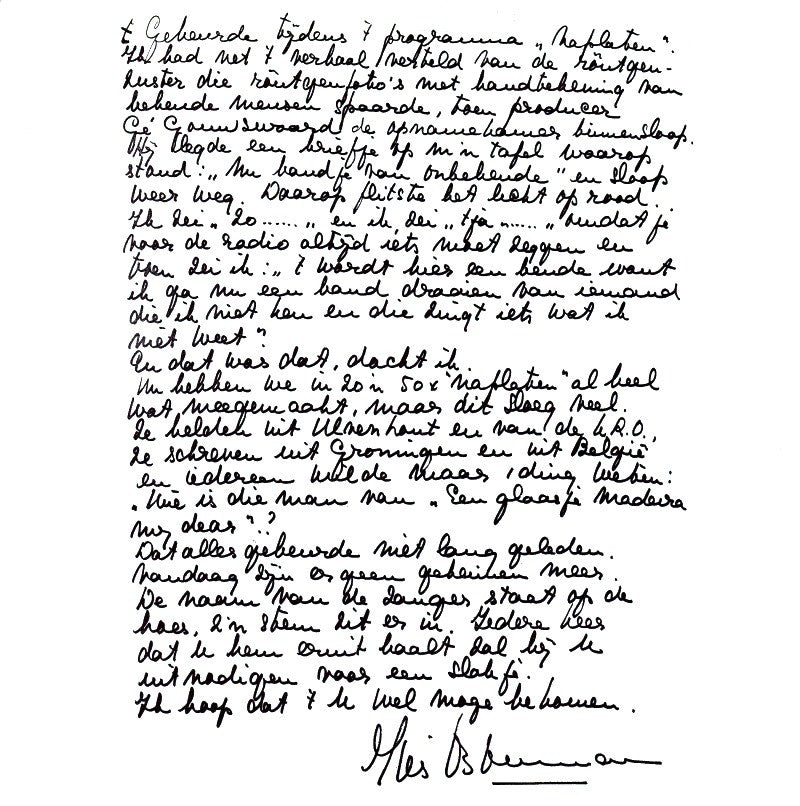 't Gebeurde tijdens 't programma „Naflaten".
Ik had net 't verhaal verteld van de röntgen-
zuster die röntgenfoto's met handtekening van
bekende mensen spaarde, toen producer
Gé Gouwswaard de opnamekamer binnensloop.
Hij legde een briefje op m'n tafel waarop
stond: „Nu bandje van onbekende" en sloop
weer weg. Daarop flitste het licht op rood.
Ik zei „zo......„ en ik zei „tja......„ omdat je
voor de radio altijd iets moet zeggen en
toen zei ik: „'t wordt hier een bende want
ik ga nu een band draaien van iemand
die ik niet ken en die zingt iets wat ik
niet weet".
En dat was dat, dacht ik.
Nu hebben we in zo'n 50 x "naflaten" al heel
wat meegemaakt, maar dit sloeg veel.
Ze belden uit Ulvenhout en van de K.R.O.,
ze schreven uit Groningen en uit België
en iedereen wilde maar 1 ding weten:
„Wie is die man van „Een glaasje Madeira
my dear"?
Dat alles gebeurde niet lang geleden.
Vandaag zijn er geen geheimen meer.
De naam van de zanger staat op de
hoes, z'n stem zit er in. Iedere keer
dat u hem eruit haalt zal hij u
uitnodigen voor een slokje.
Ik hoop dat 't u wel moge bekomen.